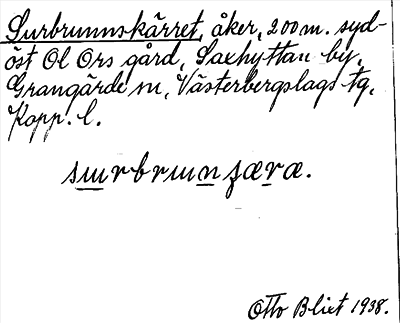 Surbrunnskärret, åker, 200 m. syd-
öst Ol Ors gård, Saxhyttan by,
Grangärde sn, Västerbergslags tg,
Kopp. l.
Otto Blixt 1938.